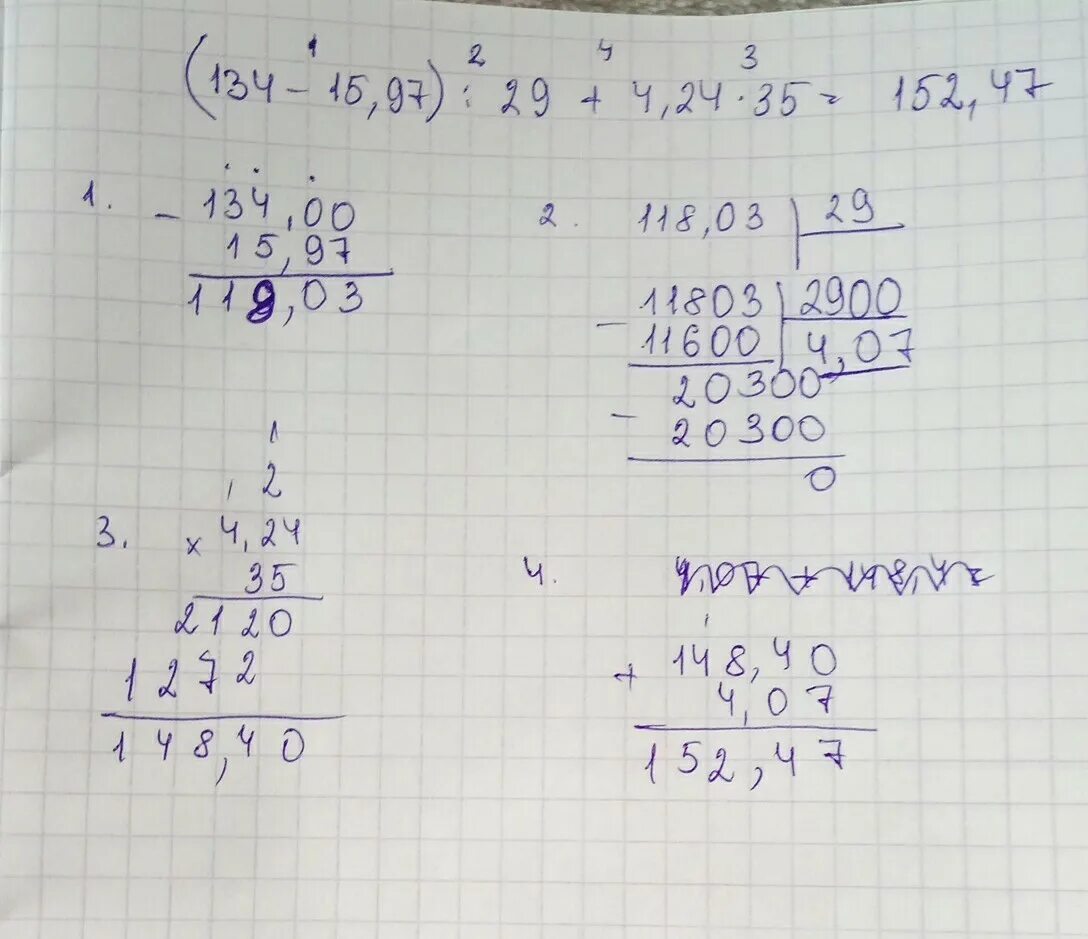 1 2 4 3
(134 - 15,97) : 29 + 4,24 · 35 = 152,47
1.
- 134,00
15,97
118,03
2.
118,03 | 29
- 11803 | 2900
11600 | 4,07
20300
- 20300
0
3.
1
, 2
x 4,24
35
2120
1272
148,40
4.
+ 148,40
4,07
152,47